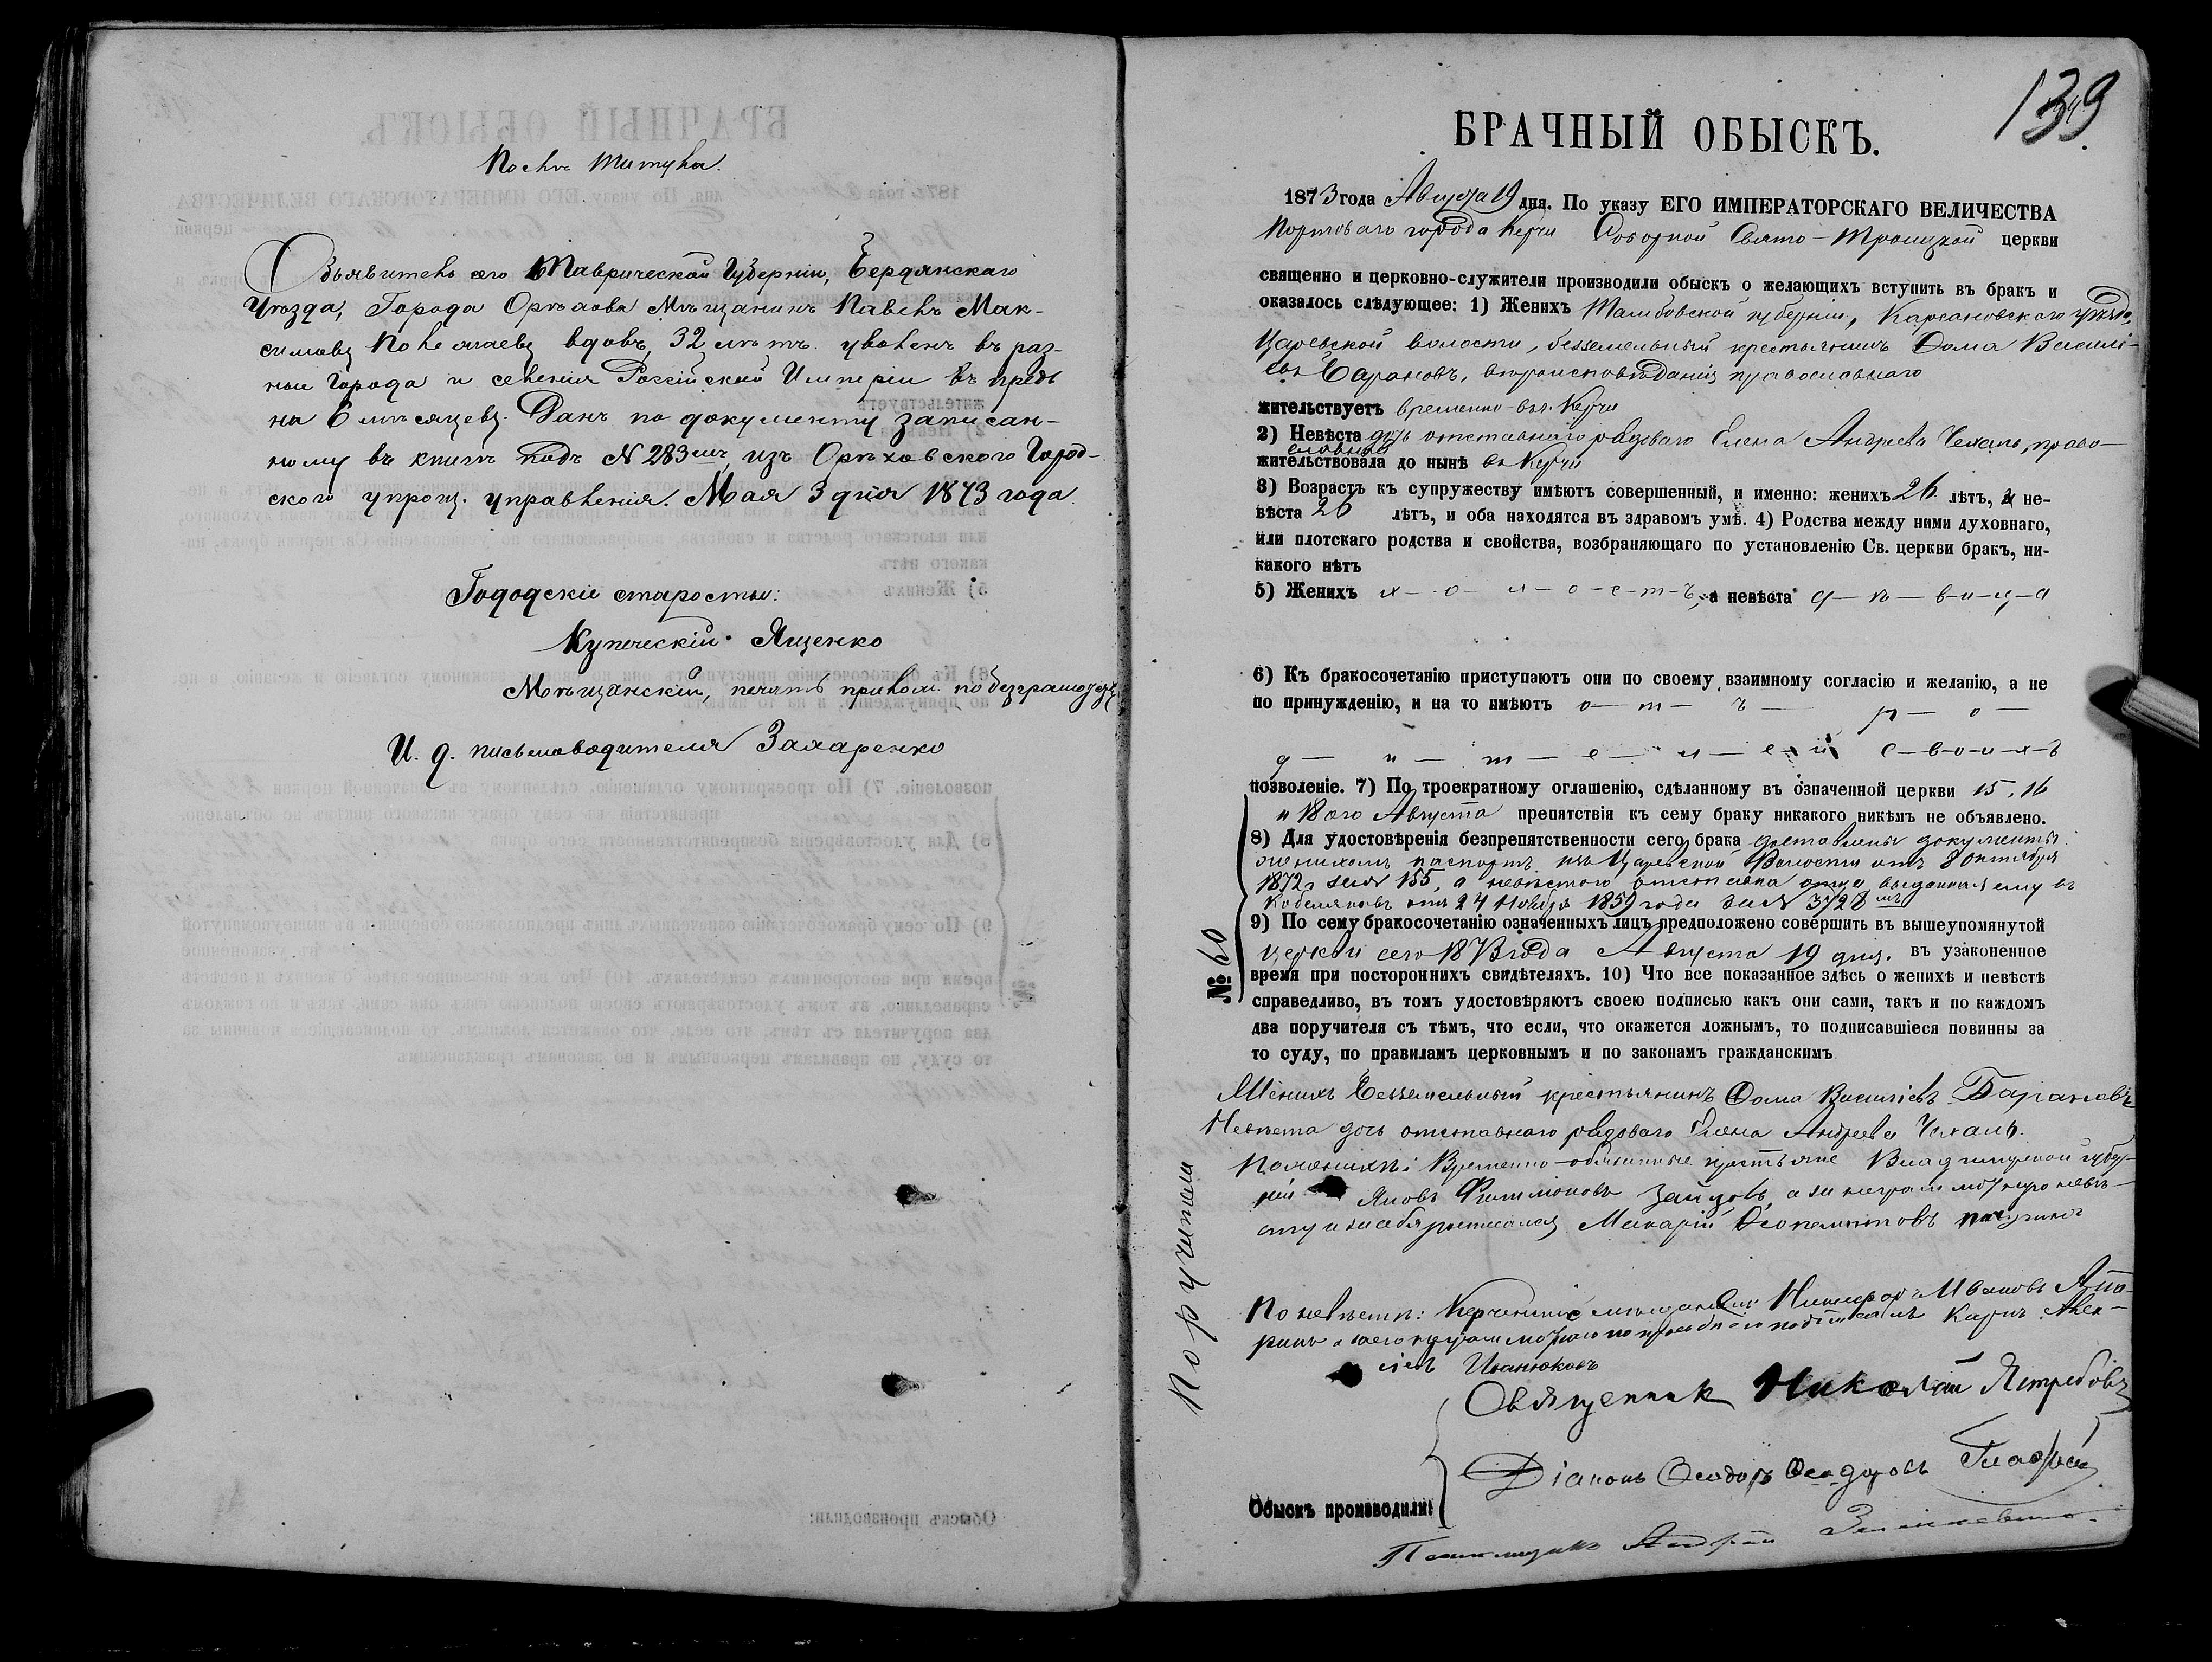 Послѣ титула.
Объявитель сего Таврической Губерніи, Бердянскаго
Уѣзда, Города Орѣхова Мѣщанинъ Павелъ Мак-
симовъ вдовъ, 32 лѣтъ уволенъ въ раз-
ные Города и селенія Россійской Имперіи въ предь
на 6 мѣсяцевъ. Данъ по документу записан-
ному въ книгѣ подъ N 283мъ, изъ Орѣховского Город-
ского упрощ. управленія. Мая 3 дня 1873 года.
Городскіе старосты:
Купеческій Ященко
Мѣщанскій, печать прилож. по безграмот.
И. д. письмоводителя Захаренко
139
БРАЧНЫЙ ОБЫСКЪ.
1873 года Августа 19 дня. По указу ЕГО ИМПЕРАТОРСКАГО ВЕЛИЧЕСТВА
Портоваго города Керчи Соборной Свято-Троицкой церкви
священно и церковно-служители производили обыскъ о желающихъ вступить въ бракъ и
оказалось слѣдующее: 1) Женихъ Тамбовской губерніи, Карсановского уѣзда,
Царевской волости, безземельный крестьянинъ Фома Василі-
евъ Барановъ, вѣроисповѣданія православнаго
жительствуетъ временно въ г. Керчи
2) Невѣста дочь отставнаго рядоваго Елена Андреева Чехаль, право-
славная
жительствовала до нынѣ въ Керчи
3) Возрастъ къ супружеству имѣютъ совершенный, и именно: женихъ 26 лѣтъ, а не-
вѣста 26 лѣтъ, и оба находятся въ здравомъ умѣ. 4) Родства между ними духовнаго,
или плотскаго родства и свойства, возбраняющаго по установленію Св. церкви бракъ, ни-
какого нѣтъ
5) Женихъ х-о-л-о-с-т-ъ, а невѣста д-ѣ-в-и-ц-а
6) Къ бракосочетанію приступаютъ они по своему взаимному согласію и желанію, а не
по принужденію, и на то имѣютъ о-т-ъ р-о-
д-и-т-е-л-е-й с-в-о-и-х-ъ
позволеніе. 7) По троекратному оглашенію, сдѣланному въ означенной церкви 15, 16
и 18 ого Августа препятствія къ сему браку никакого никѣмъ не объявлено.
8) Для удостовѣренія безпрепятственности сего брака доставлены документы:
женихомъ паспортъ изъ Царевской Волости отъ 8 октября
1872 г за N 155, а невѣстою отставка отца, выданная ему въ
отъ 24 Ноября 1859 года за N 3728 мъ
9) По сему бракосочетаніе означенныхъ лицъ предположено совершить въ вышеупомянутой
церкви сего 1873 года Августа 19 дня. въ узаконенное
время при постороннихъ свидѣтеляхъ. 10) Что все показанное здѣсь о женихѣ и невѣстѣ
справедливо, въ томъ удостовѣряютъ своею подписью какъ они сами, такъ и по каждомъ
два поручителя съ тѣмъ, что если, что окажется ложнымъ, то подписавшіеся повинны за
то суду, по правиламъ церковнымъ и по законамъ гражданскимъ
№ 60
Женихъ Безземельный крестьянинъ Фома Василіевъ Барановъ
Невѣста дочь отставнаго рядоваго Елена Андреева Чехаль.
По женихѣ: Временно-обязанные крестьяне Владимірской губер-
ніи Яковъ Филимоновъ Зайцовъ, а за неграмотную невѣ-
сту и за себя росписался Макарій
По невѣстѣ: Керченскіе мѣщане Никифоръ Ивановъ
а за его неграмотнаго по просьбѣ его подписалъ Карпъ Авек-
сіевъ Иванюковъ
Поручители
Священникъ Николай Ястребовъ
Діаконъ Ѳеодоръ Ѳеодоровъ
Обыскъ производили:
Псаломщикъ Андрей